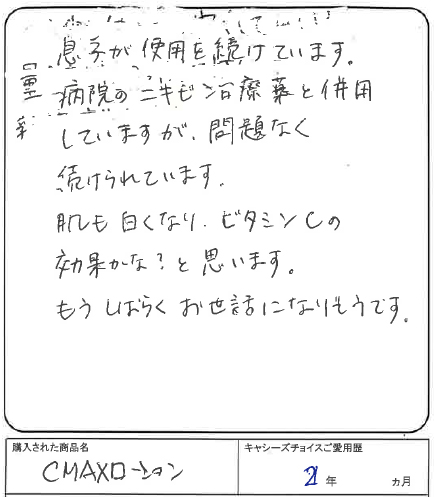 息子が使用を続けています。
病院のニキビ治療薬と併用
していますが、問題なく
続けられています。
肌も白くなり、ビタミンCの
効果かな?と思います。
もうしばらくお世話になりそうです。
購入された商品名
キャシーズチョイスご愛用歴
CMAXローション
年
ヵ月